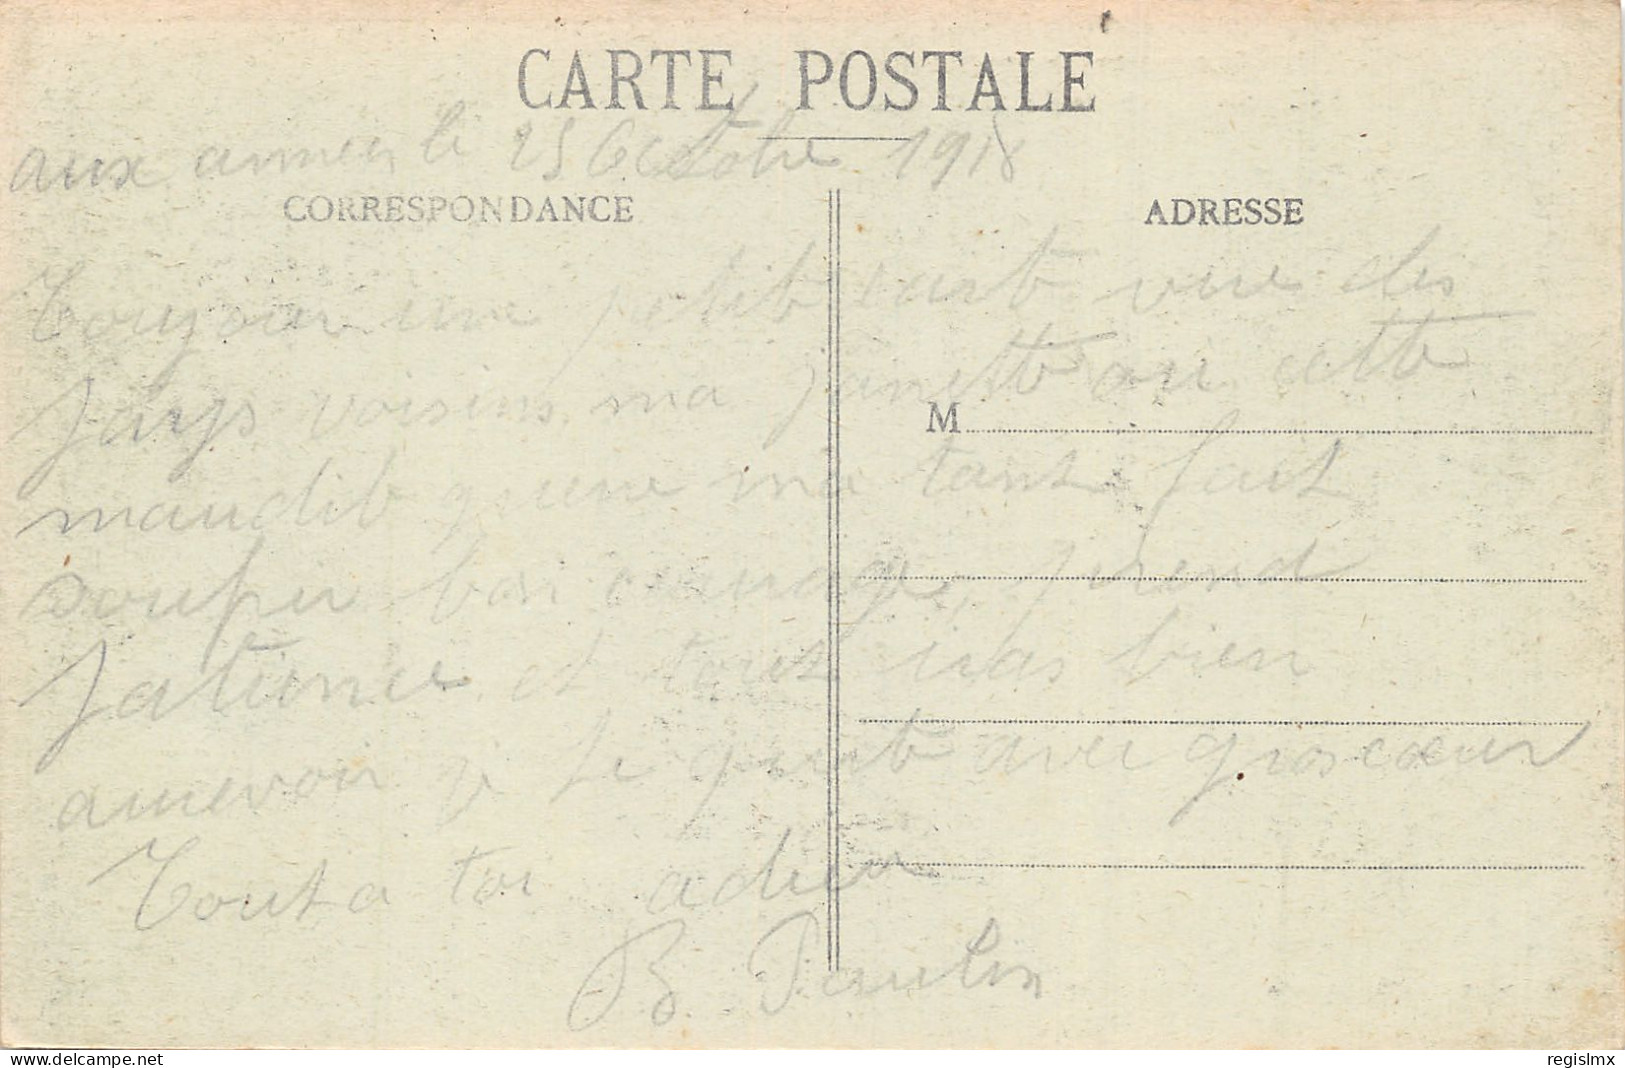 CARTE POSTALE
aux armees le 25 Octobre 1918
CORRESPONDANCE
ADRESSE
Toujour une petit cart vue des
pays voisins ma Janette ou cette
M
maudit guerre ma tant fait
soupir bon courage, prend
patience et tout iras bien
aurevoir je te quitt avec gros coeur
Tout a toi adieu
B. Paulin
www.delcampe.net
regislmx